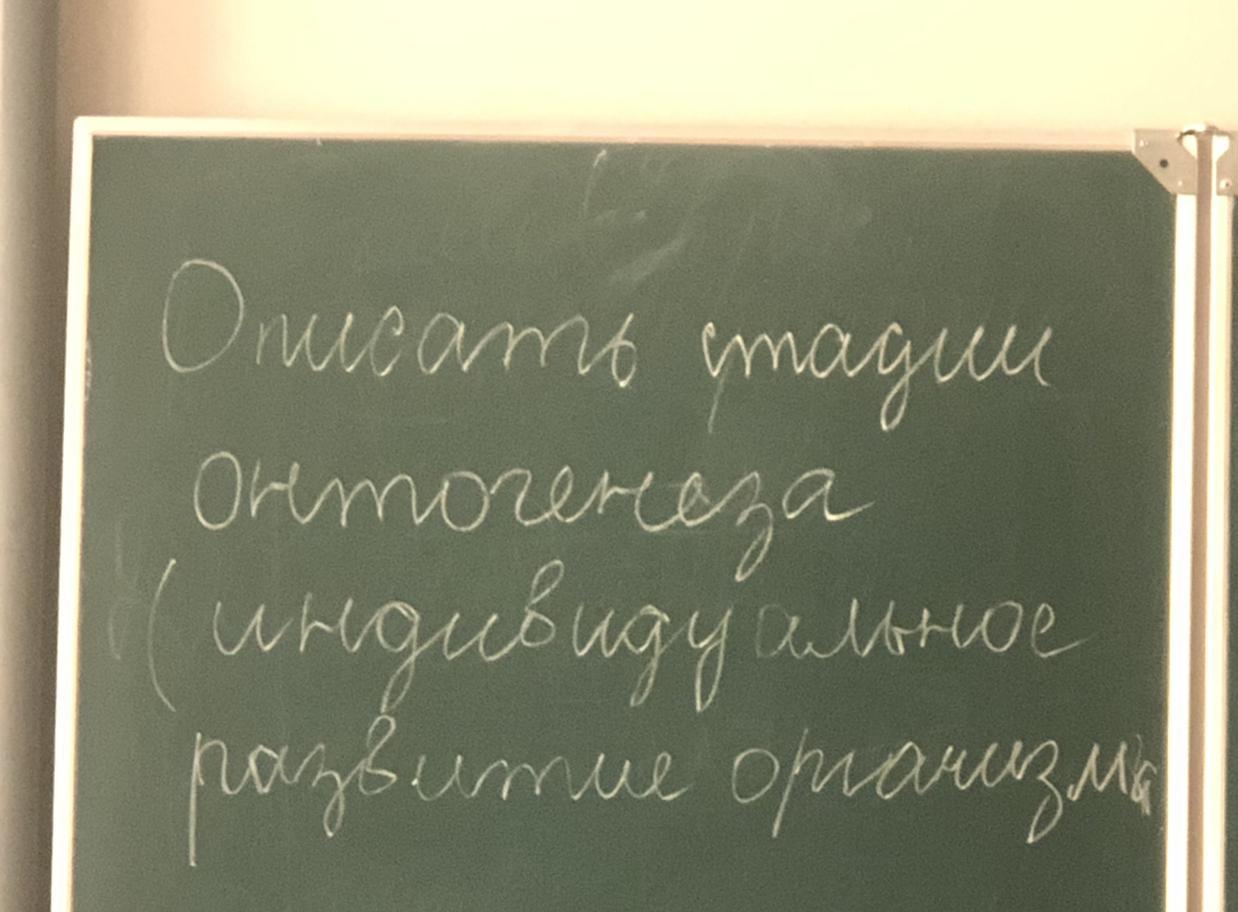 Описать стадии
онтогенеза
(индивидуальное
развитие организма